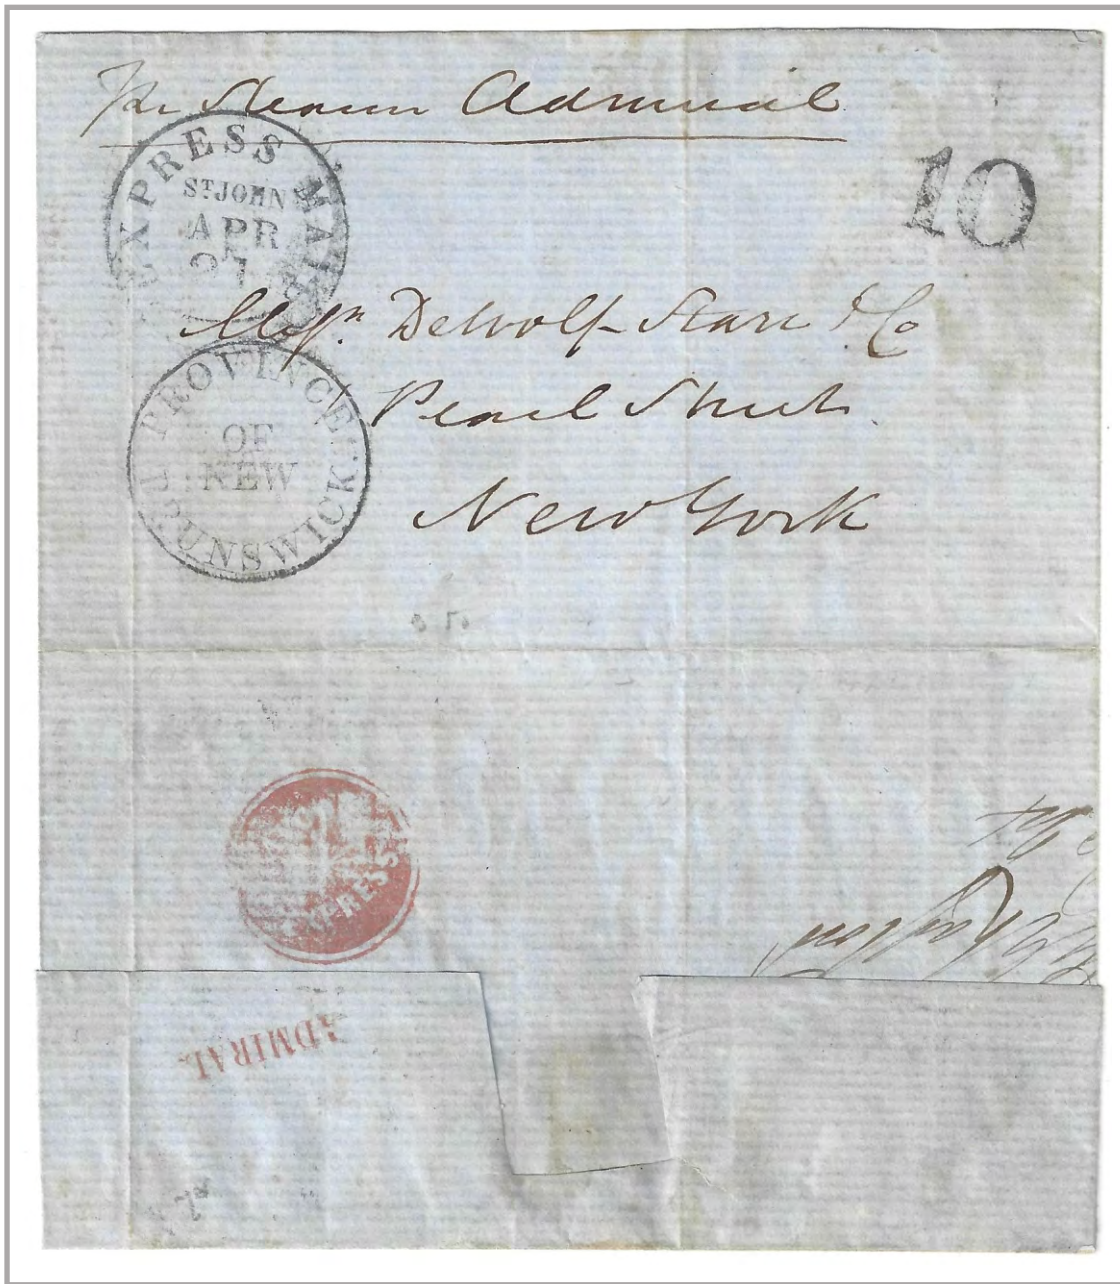 Per Steamer Admiral
10
EXPRESS MAIL
ST JOHN
APR
27
Messrs. DeWolf Starr & Co
Pearl Street
New York
PROVINCE
OF
NEW
BRUNSWICK.
EXPRESS
ADMIRAL